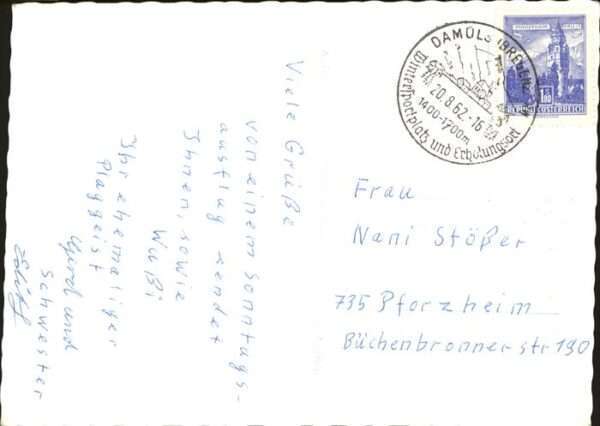 Viele Grüße
von einem Sonntags-
ausflug sendet
Ihnen, sowie
Wußi
Ihr ehemaliger
Plaggeist
Gerd und
Schwester
DAMÜLS (BREGENZ
20.8.62-16
1400-1700m
Wintersportplatz und Erholungsort
1.80
REPUBLIK ÖSTERREICH
Frau
Nani Stößer
735 Pforzheim
Büchenbronnerstr 190